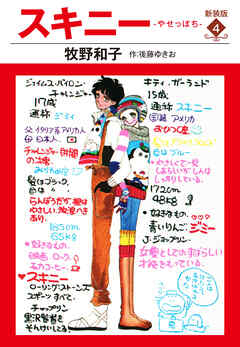 スキニー
-やせっぽち-
新装版
4
牧野和子
作:後藤ゆきお
ジェイムス・バイロン・
チャレンジャー
17歳
通称 ジミイ
父 イタリア系アメリカ人
母 日本人
髪はブラック。
目は
らんぼうだが根は
やさしい、強度の
あり
185cm
65kg
好きなもの
映画 ロック
スキニー
ローリングストーンズ
スポーツすべて。
チャップリン
黒沢賢者を
そんけいしてる!
キティ・ガーランド
15歳
通称 スキニー
国籍 アメリカ
おひつじ座
目はブルー
やさしくて一見
よわいがしんは
しっかりしている。
172cm
48kg
好きなもの
青いりんご
ジミー
J・ジョップリン
女優としてのすばらしい
才能をもっている。